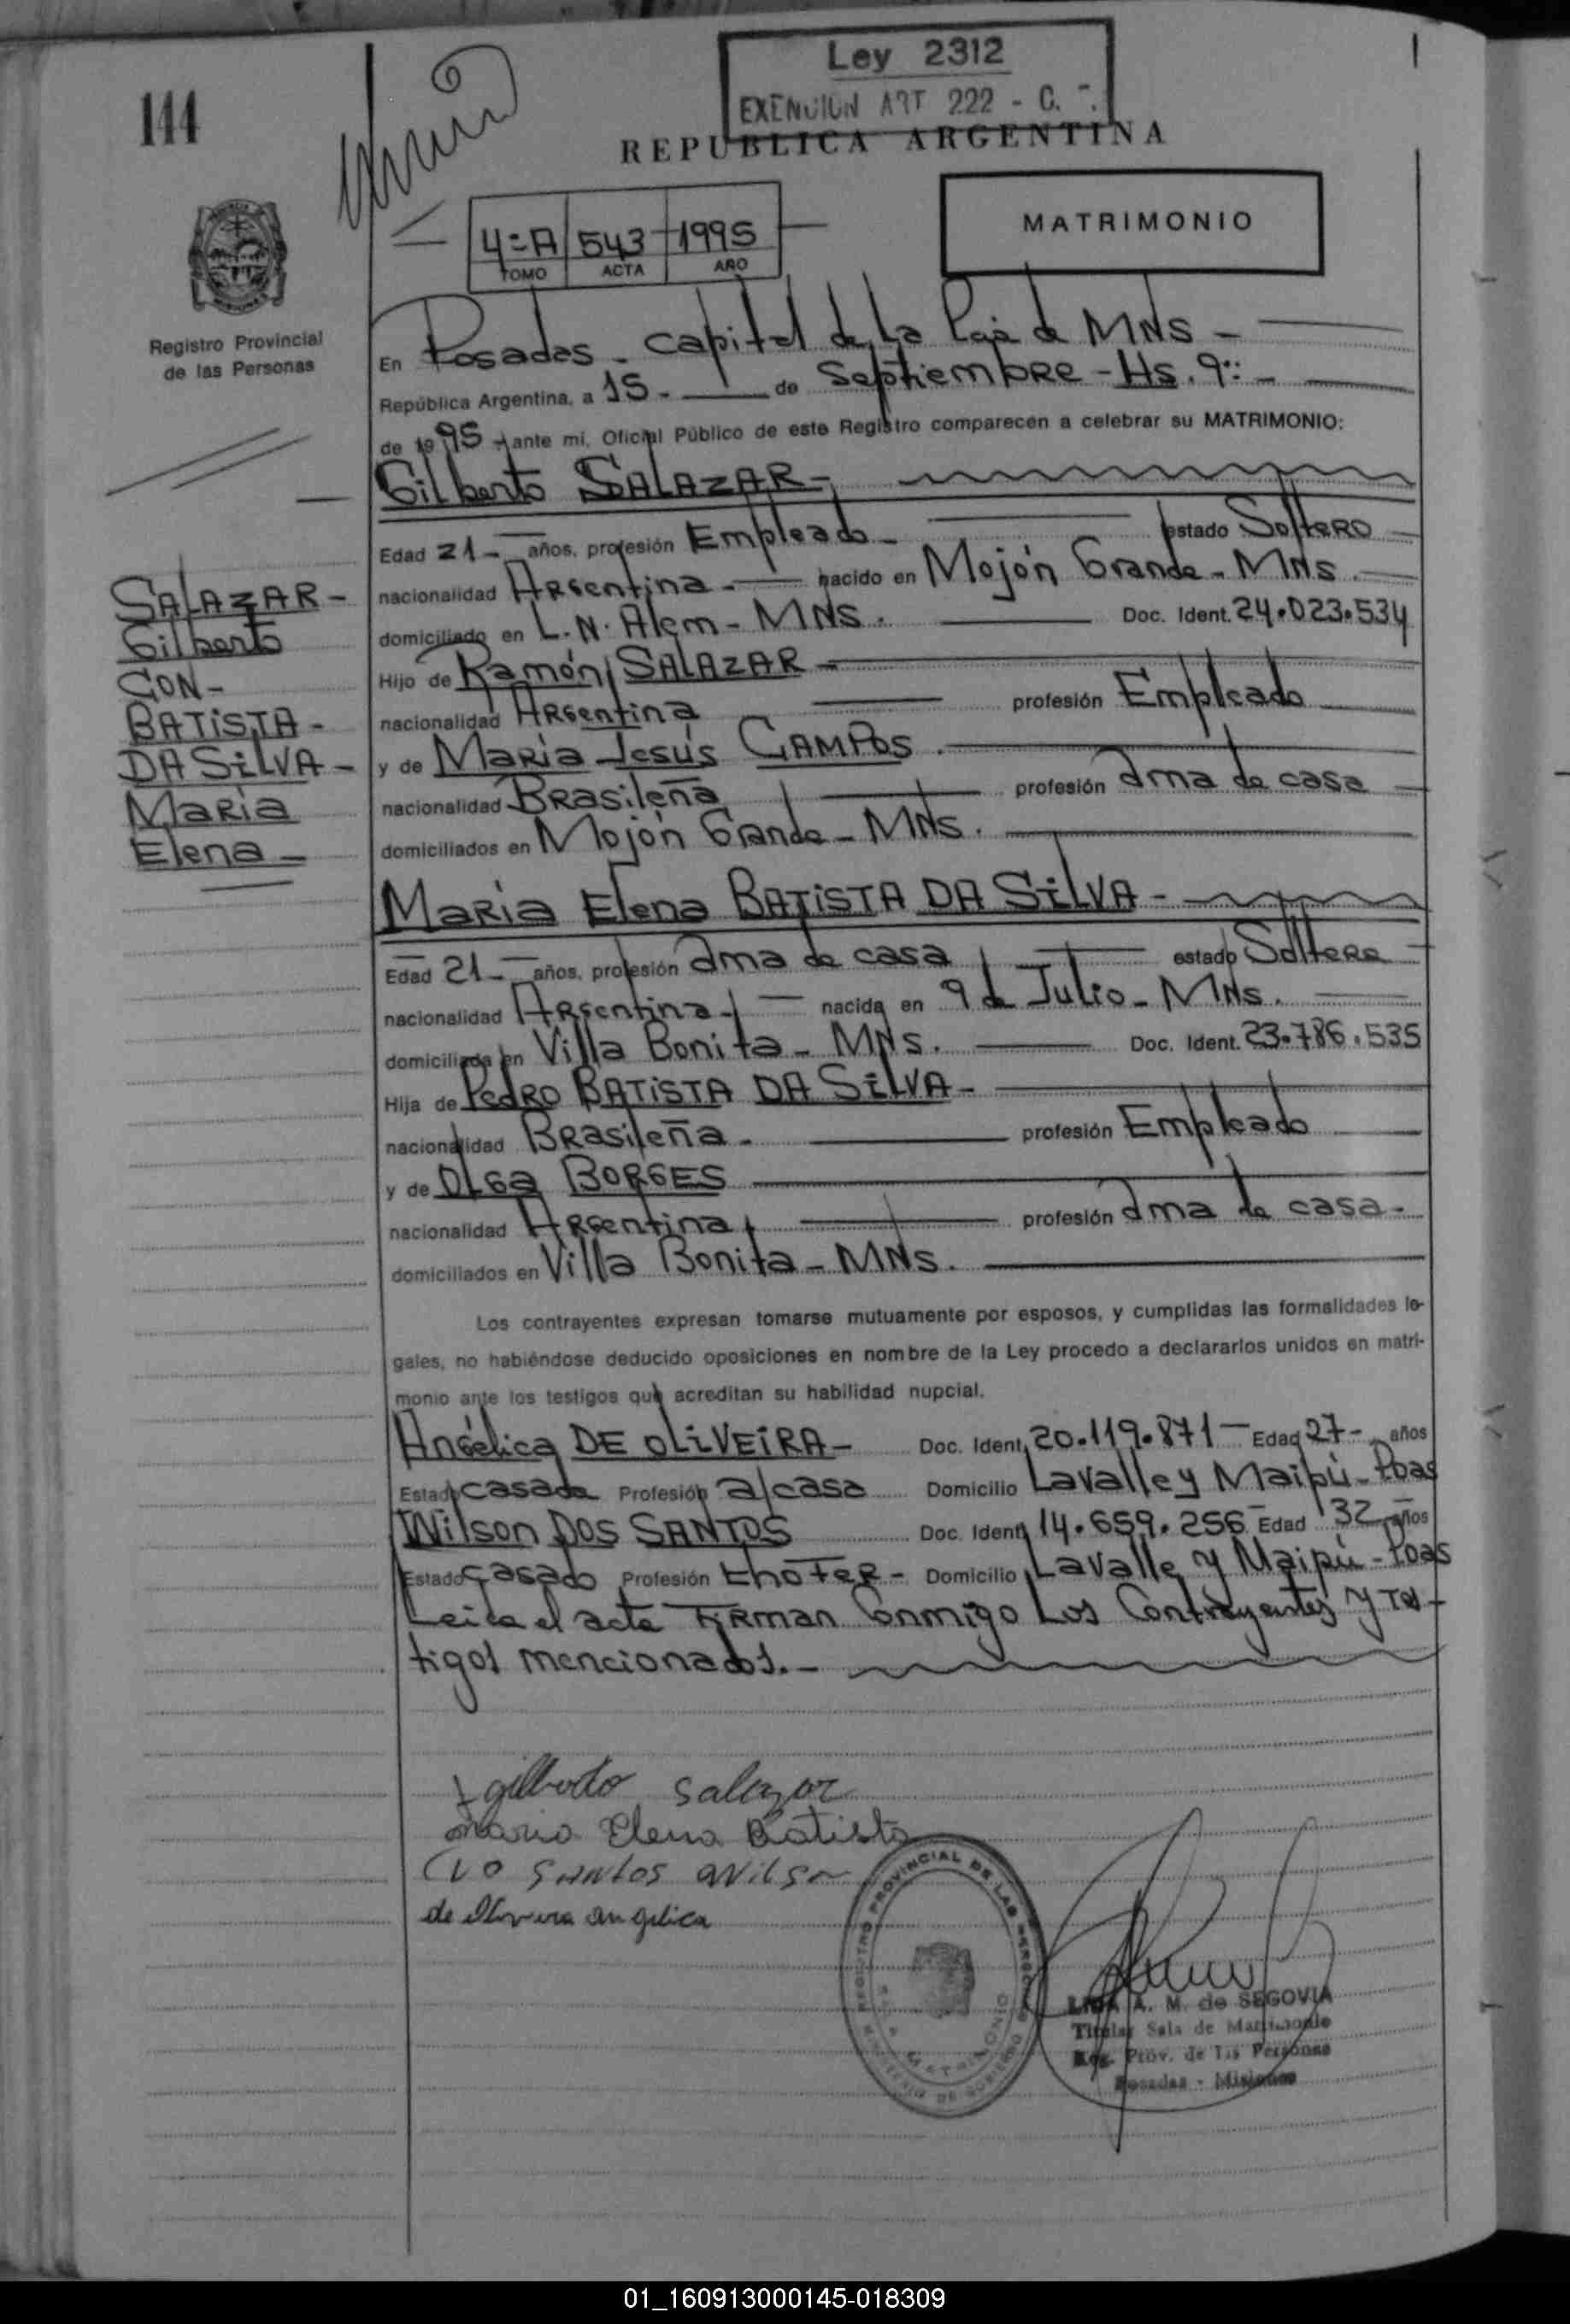 Ley 2312
EXENCION ART 222 - C.
144
REPUBLICA ARGENTINA
4=A 543 1995
TOMO ACTA AÑO
MATRIMONIO
Registro Provincial
de las Personas
En Posadas - capital de la Pcia de MNS -
República Argentina, a 15 - de Septiembre - Hs. 9:: -
de 1995 - ante mi, Oficial Público de este Registro comparecen a celebrar su MATRIMONIO:
Gilberto SALAZAR -
Edad 21 - años, profesión Empleado - estado Soltero
nacionalidad Argentina - nacido en Mojón Grande - MNS.
domiciliado en L.N. Alem - MNS. Doc. Ident. 24.023.534
Hijo de Ramón SALAZAR -
nacionalidad Argentina profesión Empleado
y de María Jesús CAMPOS.
nacionalidad Brasileña profesión ama de casa
domiciliados en Mojón Grande - MNS.
SALAZAR -
Gilberto
CON -
BATISTA -
DA SILVA -
María
Elena -
María Elena BATISTA DA SILVA -
Edad 21 - años, profesión ama de casa estado Soltera
nacionalidad Argentina - nacida en 9 de Julio - MNS.
domiciliada en Villa Bonita - MNS. Doc. Ident. 23.786.535
Hija de Pedro BATISTA DA SILVA -
nacionalidad Brasileña - profesión Empleado
y de Olga BORGES
nacionalidad Argentina profesión ama de casa -
domiciliados en Villa Bonita - MNS.
Los contrayentes expresan tomarse mutuamente por esposos, y cumplidas las formalidades le-
gales, no habiéndose deducido oposiciones en nombre de la Ley procedo a declararlos unidos en matri-
monio ante los testigos que acreditan su habilidad nupcial.
Angélica DE OLIVEIRA - Doc. Ident. 20.119.871 - Edad 27 - años
Estado casada Profesión a/casa Domicilio Lavalle y Maipú - Pdas
Wilson DOS SANTOS Doc. Ident. 14.659.256 Edad 32 años
Estado casado Profesión chofer - Domicilio Lavalle y Maipú - Pdas
Leída el acta Firman Conmigo Los Contrayentes y Tes-
tigos mencionados. -
gilberto Salazar
Maria Elena Batista
Santos Wilson
de Oliveira angelica
REGISTRO PROVINCIAL DE LAS PERSONAS
MATRIMONIO
MINISTERIO DE GOBIERNO
A. M. de SEGOVIA
Titular Sala de Matrimonio
Reg. Prov. de las Personas
Posadas - Misiones
01_160913000145-018309